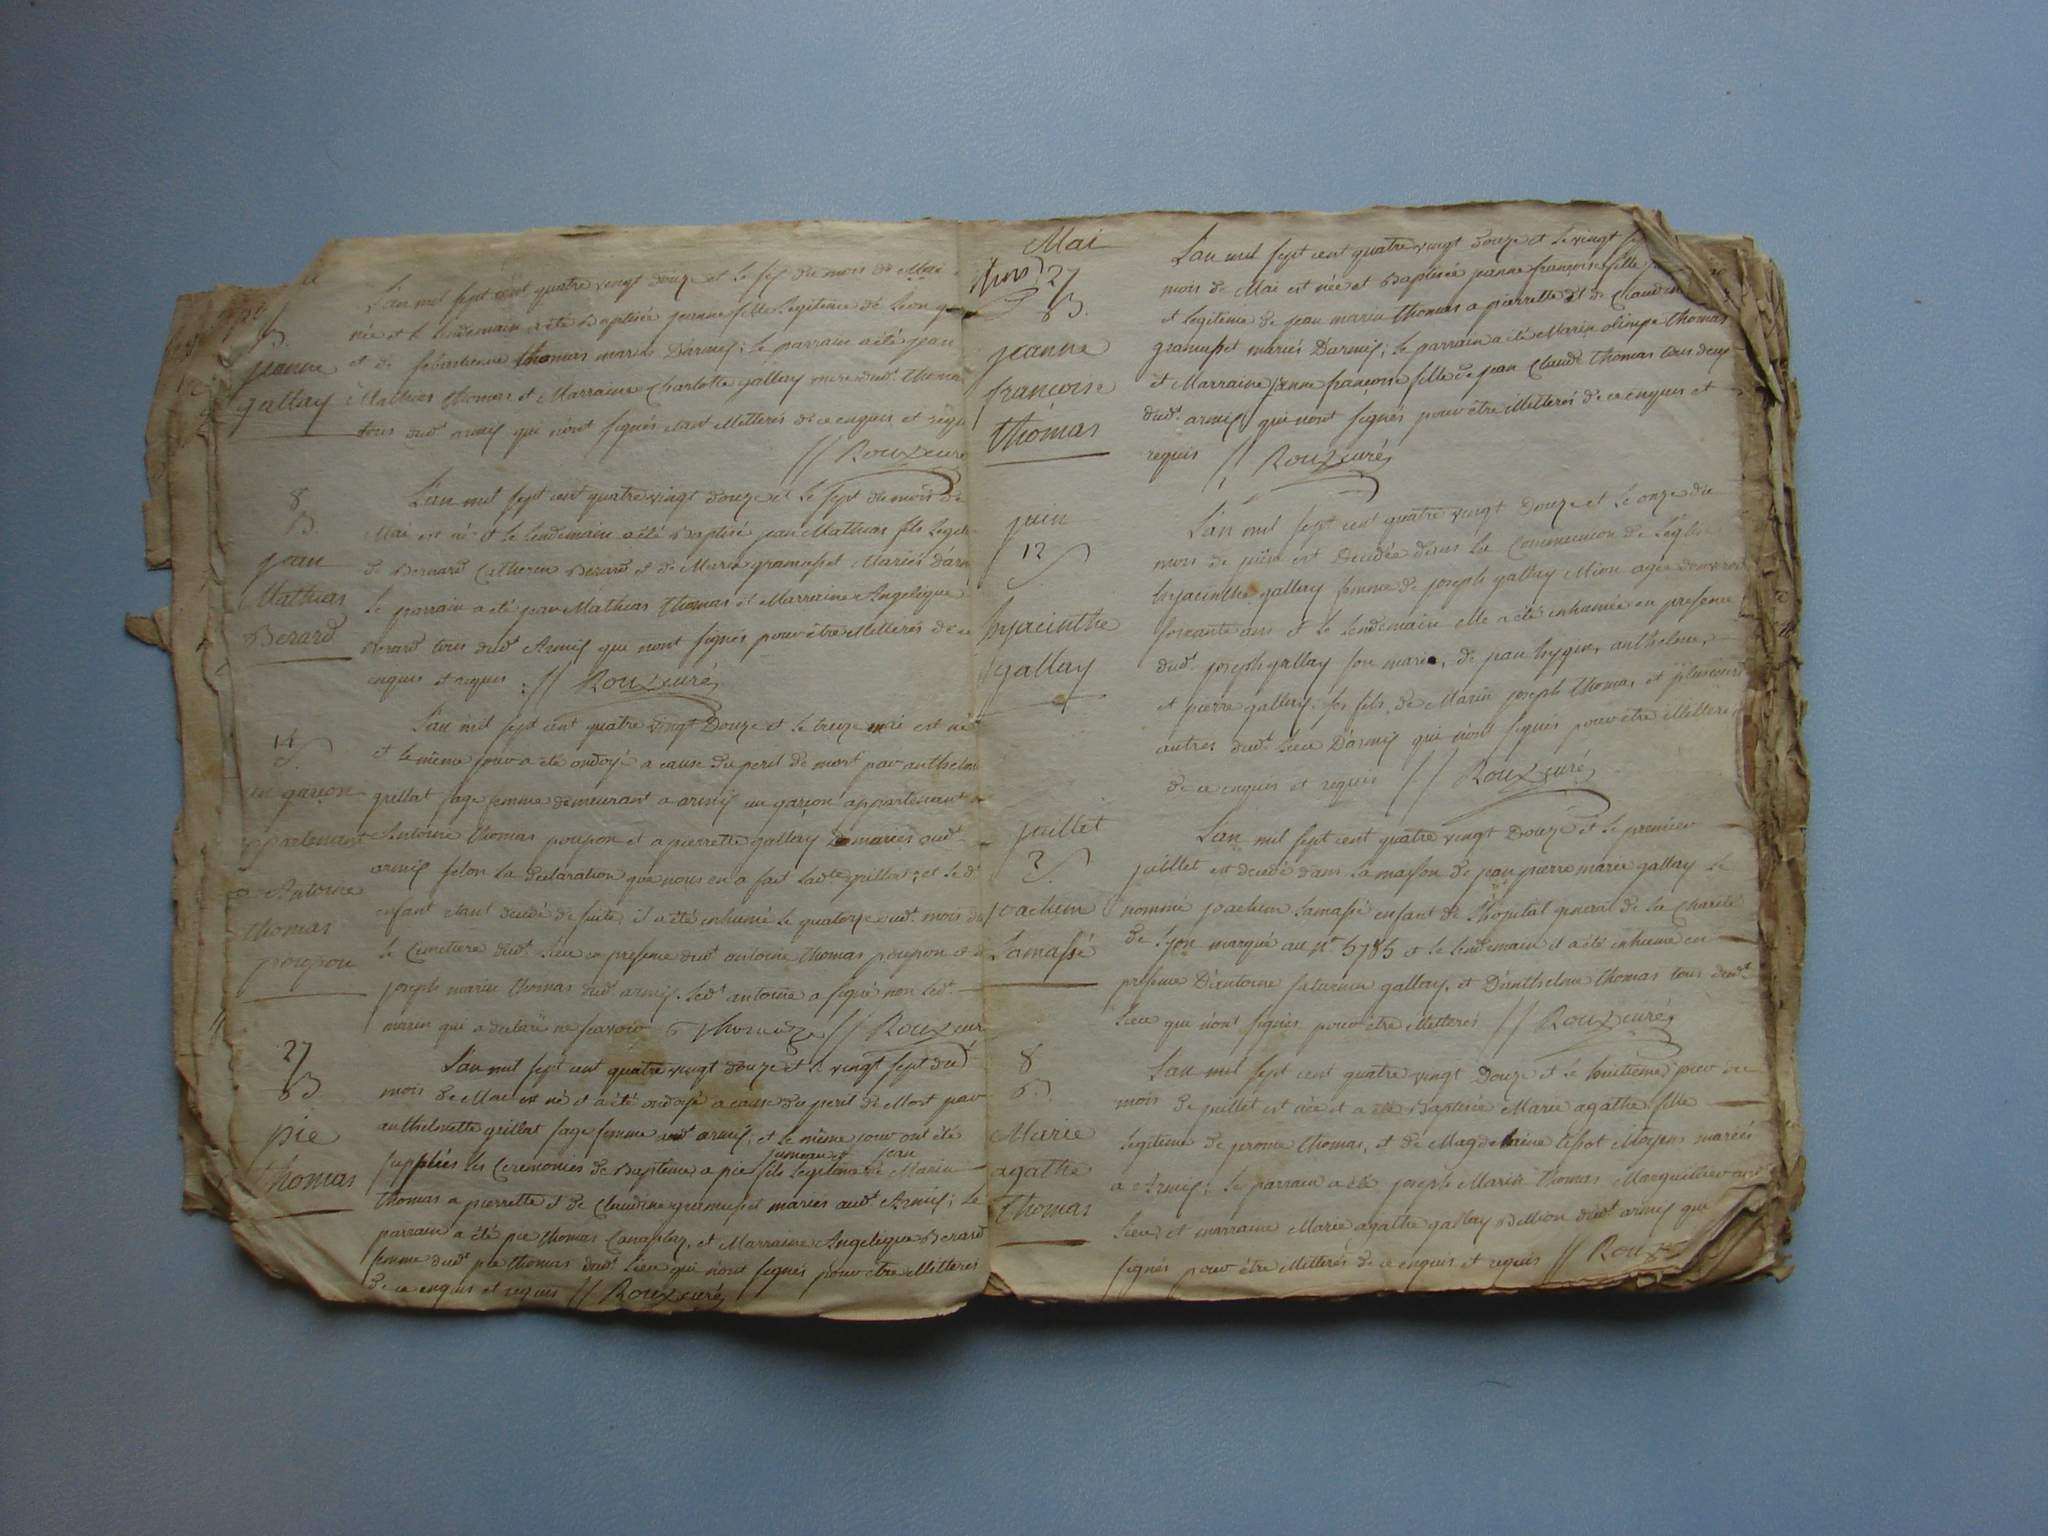 B
jeanne
gallay
L'an mil sept cent quatre vingt douze et le sept du mois de Mai
née et le lendemain a été Baptisée jeanne fille Legitime de Leon
et de sebastienne thomas mariés D'armix; le parrain a été jean
Mathias thomas et Marraine Charlotte gallay mere dud.t thomas
tous dud.t armix qui n'ont signés etant illetterés de ce enquis et requis
// Roux curé
8
B.
jean
Mathias
Berard
L'an mil sept cent quatre vingt douze et le sept du mois de
Mai est né et le lendemain a été Baptisé jean Mathias fils Legit
de Bernard Catherin Berard et de Marie gramusset Mariés d'arm
le parrain a été jean Mathias thomas et Marraine Angelique
Berard tous dud.t Armix qui n'ont signés pour être illetterés de ce
enquis et requis // Roux curé
14
S
un garçon
appartenant
a Antoine
thomas
poupon
L'an mil sept cent quatre vingt Douze et le treize mai est né
et le même jour a été ondoyé a cause du peril de mort par anthelm
grillat sage femme demeurant a armix un garçon appartenant a
Antoine thomas poupon et a pierrette gallay mariés aud.t
armix selon la declaration que nous en a fait lad.te grillat; et le d.t
enfant etant decedé de suite il a été inhumé le quatorze dud.t mois da
le Cimetiere dud.t Lieu en presence dud.t antoine thomas poupon et d
joseph marin thomas dud.t armix. led.t antoine a signé non led.t
marin qui a declaré ne sçavoir // Roux cur
27
B
pie
thomas
L'an mil sept cent quatre vingt douze et le vingt sept du
mois de Mai est né et a été ondoyé a cause du peril de Mort par
anthelmette grillat sage femme aud.t armix, et le même jour ont été
jumeau jean
suppléés les Ceremonies de Baptême a pie fils Legitime de Marin
thomas a pierrette et de Claudine gramusset mariés aud.t Armix; le
parrain a été pie thomas Canaplay, et Marraine Angelique Berard
femme dud.t pie thomas dud.t Lieu qui n'ont signés pour être illetterés
de ce enquis et requis // Roux curé
Mai
27
B.
jeanne
françoise
thomas
L'an mil sept cent quatre vingt douze et le vingt
mois de Mai est née et Baptisée jeanne françoise fille
et legitime de jean marin thomas a pierrette et de Claudine
gramusset mariés D'armix; le parrain a été Marin olimpe thomas
et Marraine jeanne françoise fille de jean Claude thomas tous deux
dud.t armix qui n'ont signés pour être illetterés de ce enquis et
requis // Roux curé
juin
12
S
hyacinthe
gallay
L'an mil sept cent quatre vingt Douze et le onze du
mois de juin est decedée dans la Communion de l'eglis
hyacinthe gallay femme de joseph gallay Mion agée d'environ
soixante ans et le lendemain elle a été inhumée en presence
dud.t joseph gallay son mari, de jean hygin, anthelme,
et pierre gallay ses fils, de Marin joseph thomas, et plusieurs
autres dud.t Lieu D'armix qui n'ont signés pour être illetteré
de ce enquis et requis // Roux curé
juillet
2 S.
joachim
Lamassé
L'an mil sept cent quatre vingt Douze et le premier
juillet est decedé dans la maison de jean pierre marie gallay le
nommé joachim Lamassé enfant de l'hopital general de la Charité
de Lyon marqué au n.º 5785 et le lendemain il a été inhumé en
presence D'antoine saturnin gallay, et D'anthelme thomas tous dud.t
Lieu qui n'ont signés pour être illetterés // Roux curé
8
B.
Marie
agathe
thomas
L'an mil sept cent quatre vingt Douze et le huitieme jour du
mois de juillet est née et a été Baptisée Marie agathe fille
legitime de jerome thomas, et de Magdelaine tissot Moyens mariés
a Armix; le parrain a été joseph Marin thomas Marguillier aud
Lieu, et marraine Marie agathe gallay Billion dud.t armix qui
signés pour être illetterés de ce enquis et requis // Roux